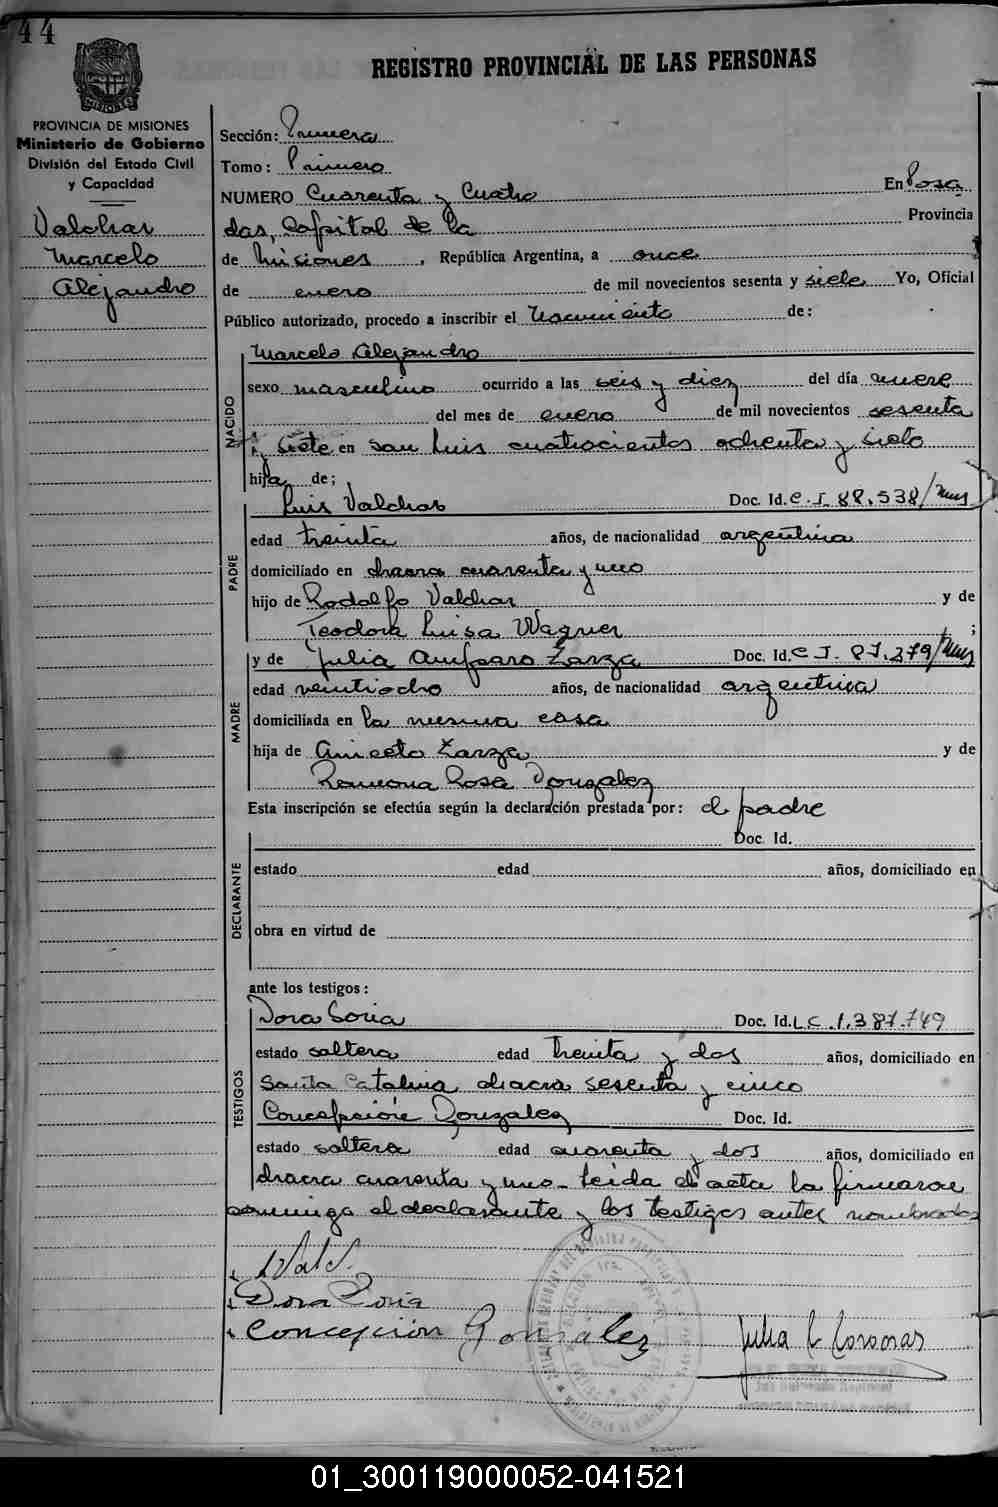 44
REGISTRO PROVINCIAL DE LAS PERSONAS
MISIONES
PROVINCIA DE MISIONES
Ministerio de Gobierno
División del Estado Civil
y Capacidad
Valchar
Marcelo
Alejandro
Sección: Primera
Tomo: Primero
NUMERO Cuarenta y Cuatro En Posa
das, Capital de la Provincia
de Misiones, República Argentina, a once
de enero de mil novecientos sesenta y siete Yo, Oficial
Público autorizado, procedo a inscribir el Nacimiento de:
NACIDO
Marcelo Alejandro
sexo masculino ocurrido a las seis y diez del día nueve
del mes de enero de mil novecientos sesenta
y siete en San Luis cuatrocientos ochenta y siete
hijo de;
PADRE
Luis Valchar Doc. Id. C.I. 88.538/Mnes
edad treinta años, de nacionalidad argentina
domiciliado en chacra cuarenta y uno
hijo de Rodolfo Valchar y de
Teodora Luisa Wagner ;
MADRE
y de Julia Amparo Zarza Doc. Id. C.I. 87.379/Mnes
edad veintiocho años, de nacionalidad argentina
domiciliada en la misma casa
hija de Aniceto Zarza y de
Ramona Rosa González
Esta inscripción se efectúa según la declaración prestada por: el padre
DECLARANTE
Doc. Id.
estado edad años, domiciliado en
obra en virtud de
ante los testigos:
TESTIGOS
Dora Soria Doc. Id. LC.1.387.749
estado soltera edad treinta y dos años, domiciliado en
Santa Catalina chacra sesenta y cinco
Concepción González Doc. Id.
estado soltera edad cuarenta y dos años, domiciliado en
chacra cuarenta y uno - Leida el acta la firmaron
conmigo el declarante y los testigos antes nombrados
Dora Soria
Concepción Gonzalez
Julia
01_300119000052-041521